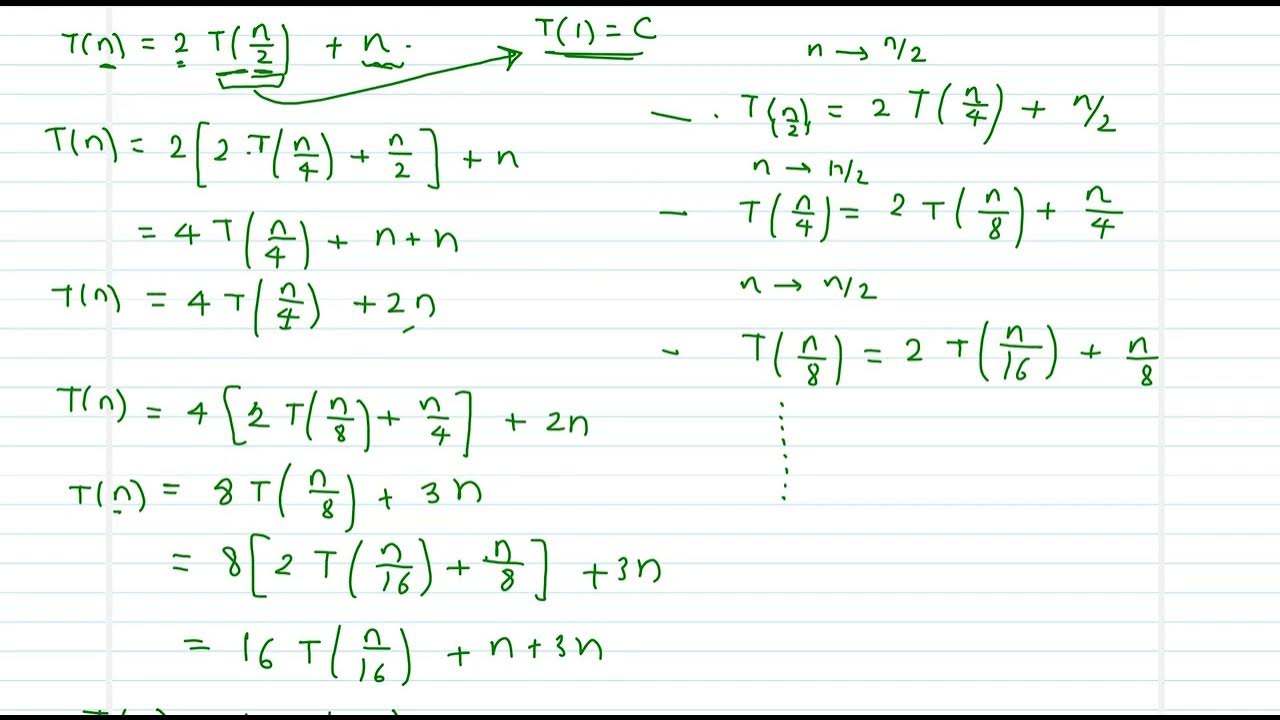 T(n) = 2 T(n/2) + n.
T(1) = C
T(n) = 2[2.T(n/4) + n/2] + n
= 4 T(n/4) + n + n
T(n) = 4 T(n/4) + 2n
T(n) = 4[2 T(n/8) + n/4] + 2n
T(n) = 8 T(n/8) + 3n
= 8[2 T(n/16) + n/8] + 3n
= 16 T(n/16) + n + 3n
n → n/2
— . T(n/2) = 2 T(n/4) + n/2
n → n/2
– T(n/4) = 2 T(n/8) + n/4
n → n/2
- T(n/8) = 2 T(n/16) + n/8